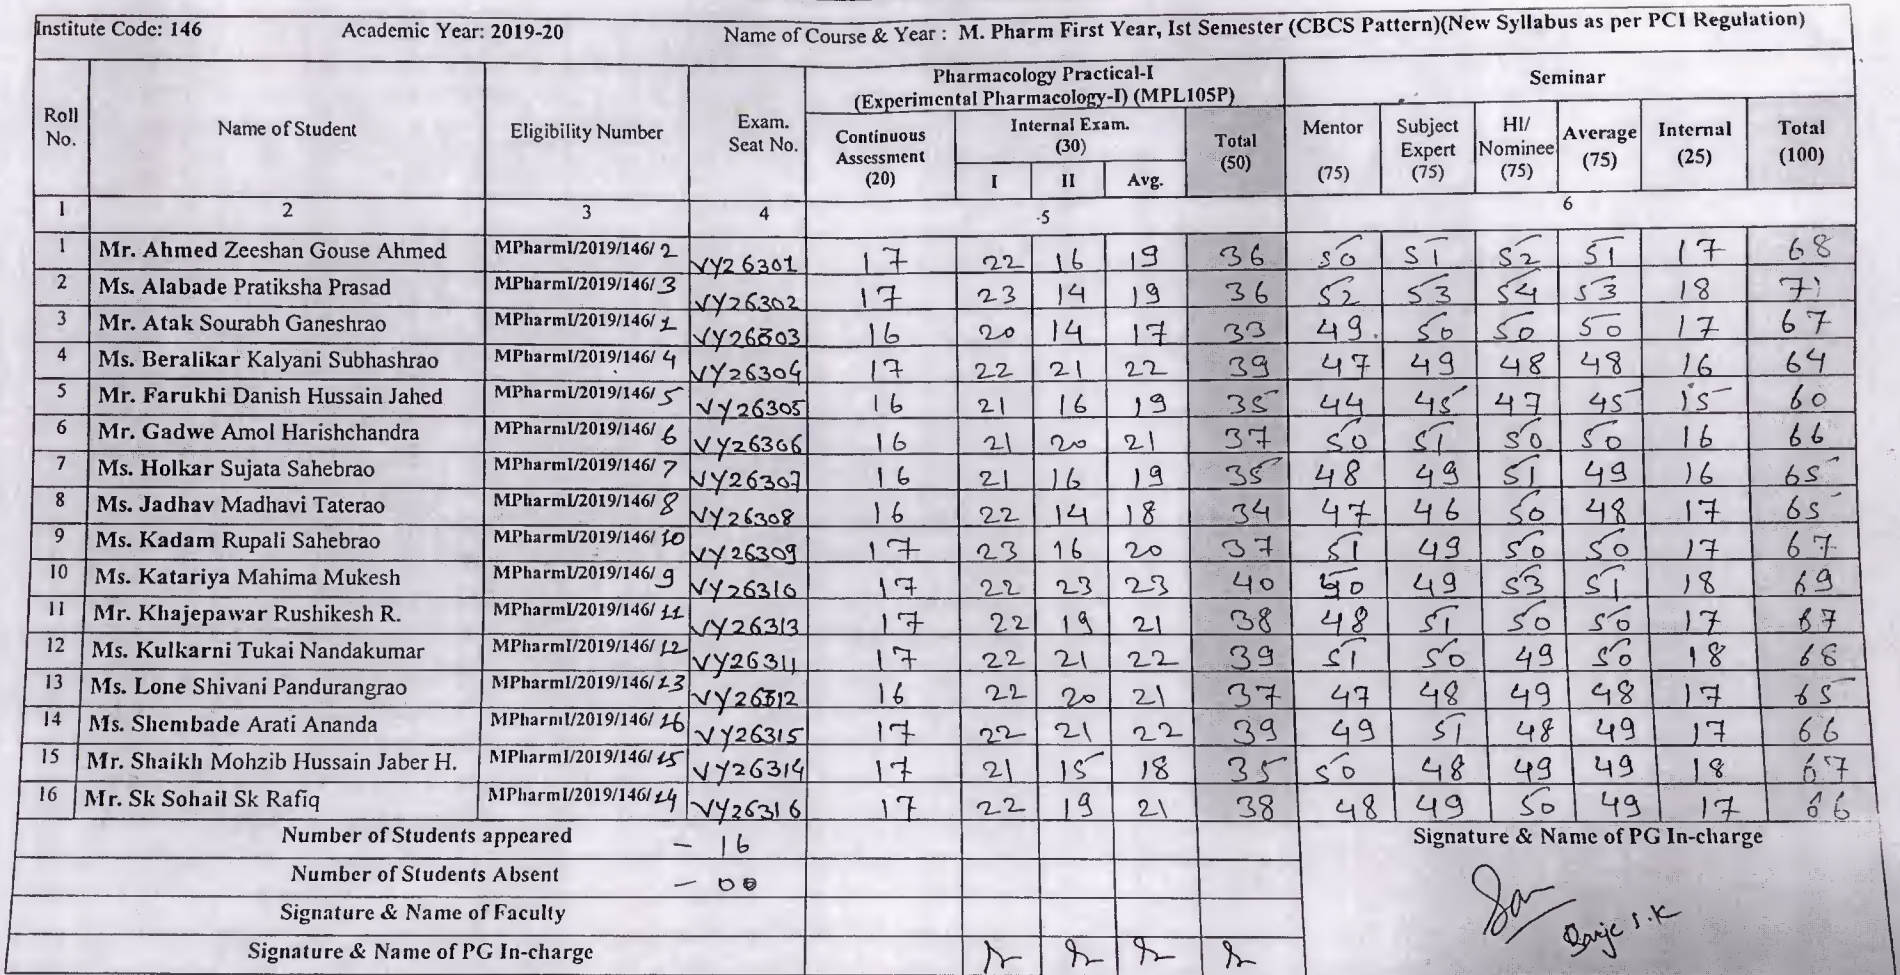 Institute Code: 146 Academic Year: 2019-20 Name of Course & Year : M. Pharm First Year, Ist Semester (CBCS Pattern)(New Syllabus as per PCI Regulation)
Roll No. Name of Student Eligibility Number Exam. Seat No. Pharmacology Practical-I (Experimental Pharmacology-I) (MPL105P) Seminar
Continuous Assessment (20) Internal Exam. (30) Total (50) Mentor (75) Subject Expert (75) HI/ Nominee (75) Average (75) Internal (25) Total (100)
I II Avg.
1 2 3 4 5 6
1 Mr. Ahmed Zeeshan Gouse Ahmed MPharmI/2019/146/ 2 VY26301 17 22 16 19 36 50 51 52 51 17 68
2 Ms. Alabade Pratiksha Prasad MPharmI/2019/146/ 3 VY26302 17 23 14 19 36 52 53 54 53 18 71
3 Mr. Atak Sourabh Ganeshrao MPharmI/2019/146/ 1 VY26303 16 20 14 17 33 49 50 50 50 17 67
4 Ms. Beralikar Kalyani Subhashrao MPharmI/2019/146/ 4 VY26304 17 22 21 22 39 47 49 48 48 16 64
5 Mr. Farukhi Danish Hussain Jahed MPharmI/2019/146/ 5 VY26305 16 21 16 19 35 44 45 47 45 15 60
6 Mr. Gadwe Amol Harishchandra MPharmI/2019/146/ 6 VY26306 16 21 20 21 37 50 51 50 50 16 66
7 Ms. Holkar Sujata Sahebrao MPharmI/2019/146/ 7 VY26307 16 21 16 19 35 48 49 51 49 16 65
8 Ms. Jadhav Madhavi Taterao MPharmI/2019/146/ 8 VY26308 16 22 14 18 34 47 46 50 48 17 65
9 Ms. Kadam Rupali Sahebrao MPharmI/2019/146/ 10 VY26309 17 23 16 20 37 51 49 50 50 17 67
10 Ms. Katariya Mahima Mukesh MPharmI/2019/146/ 9 VY26310 17 22 23 23 40 50 49 53 51 18 69
11 Mr. Khajepawar Rushikesh R. MPharmI/2019/146/ 11 VY26313 17 22 19 21 38 48 51 50 50 17 67
12 Ms. Kulkarni Tukai Nandakumar MPharmI/2019/146/ 12 VY26311 17 22 21 22 39 51 50 49 50 18 68
13 Ms. Lone Shivani Pandurangrao MPharmI/2019/146/ 13 VY26312 16 22 20 21 37 47 48 49 48 17 65
14 Ms. Shembade Arati Ananda MPharmI/2019/146/ 16 VY26315 17 22 21 22 39 49 51 48 49 17 66
15 Mr. Shaikh Mohzib Hussain Jaber H. MPharmI/2019/146/ 15 VY26314 17 21 15 18 35 50 48 49 49 18 67
16 Mr. Sk Sohail Sk Rafiq MPharmI/2019/146/ 14 VY26316 17 22 19 21 38 48 49 50 49 17 66
Number of Students appeared - 16 Signature & Name of PG In-charge
Number of Students Absent - 00
Signature & Name of Faculty
Signature & Name of PG In-charge